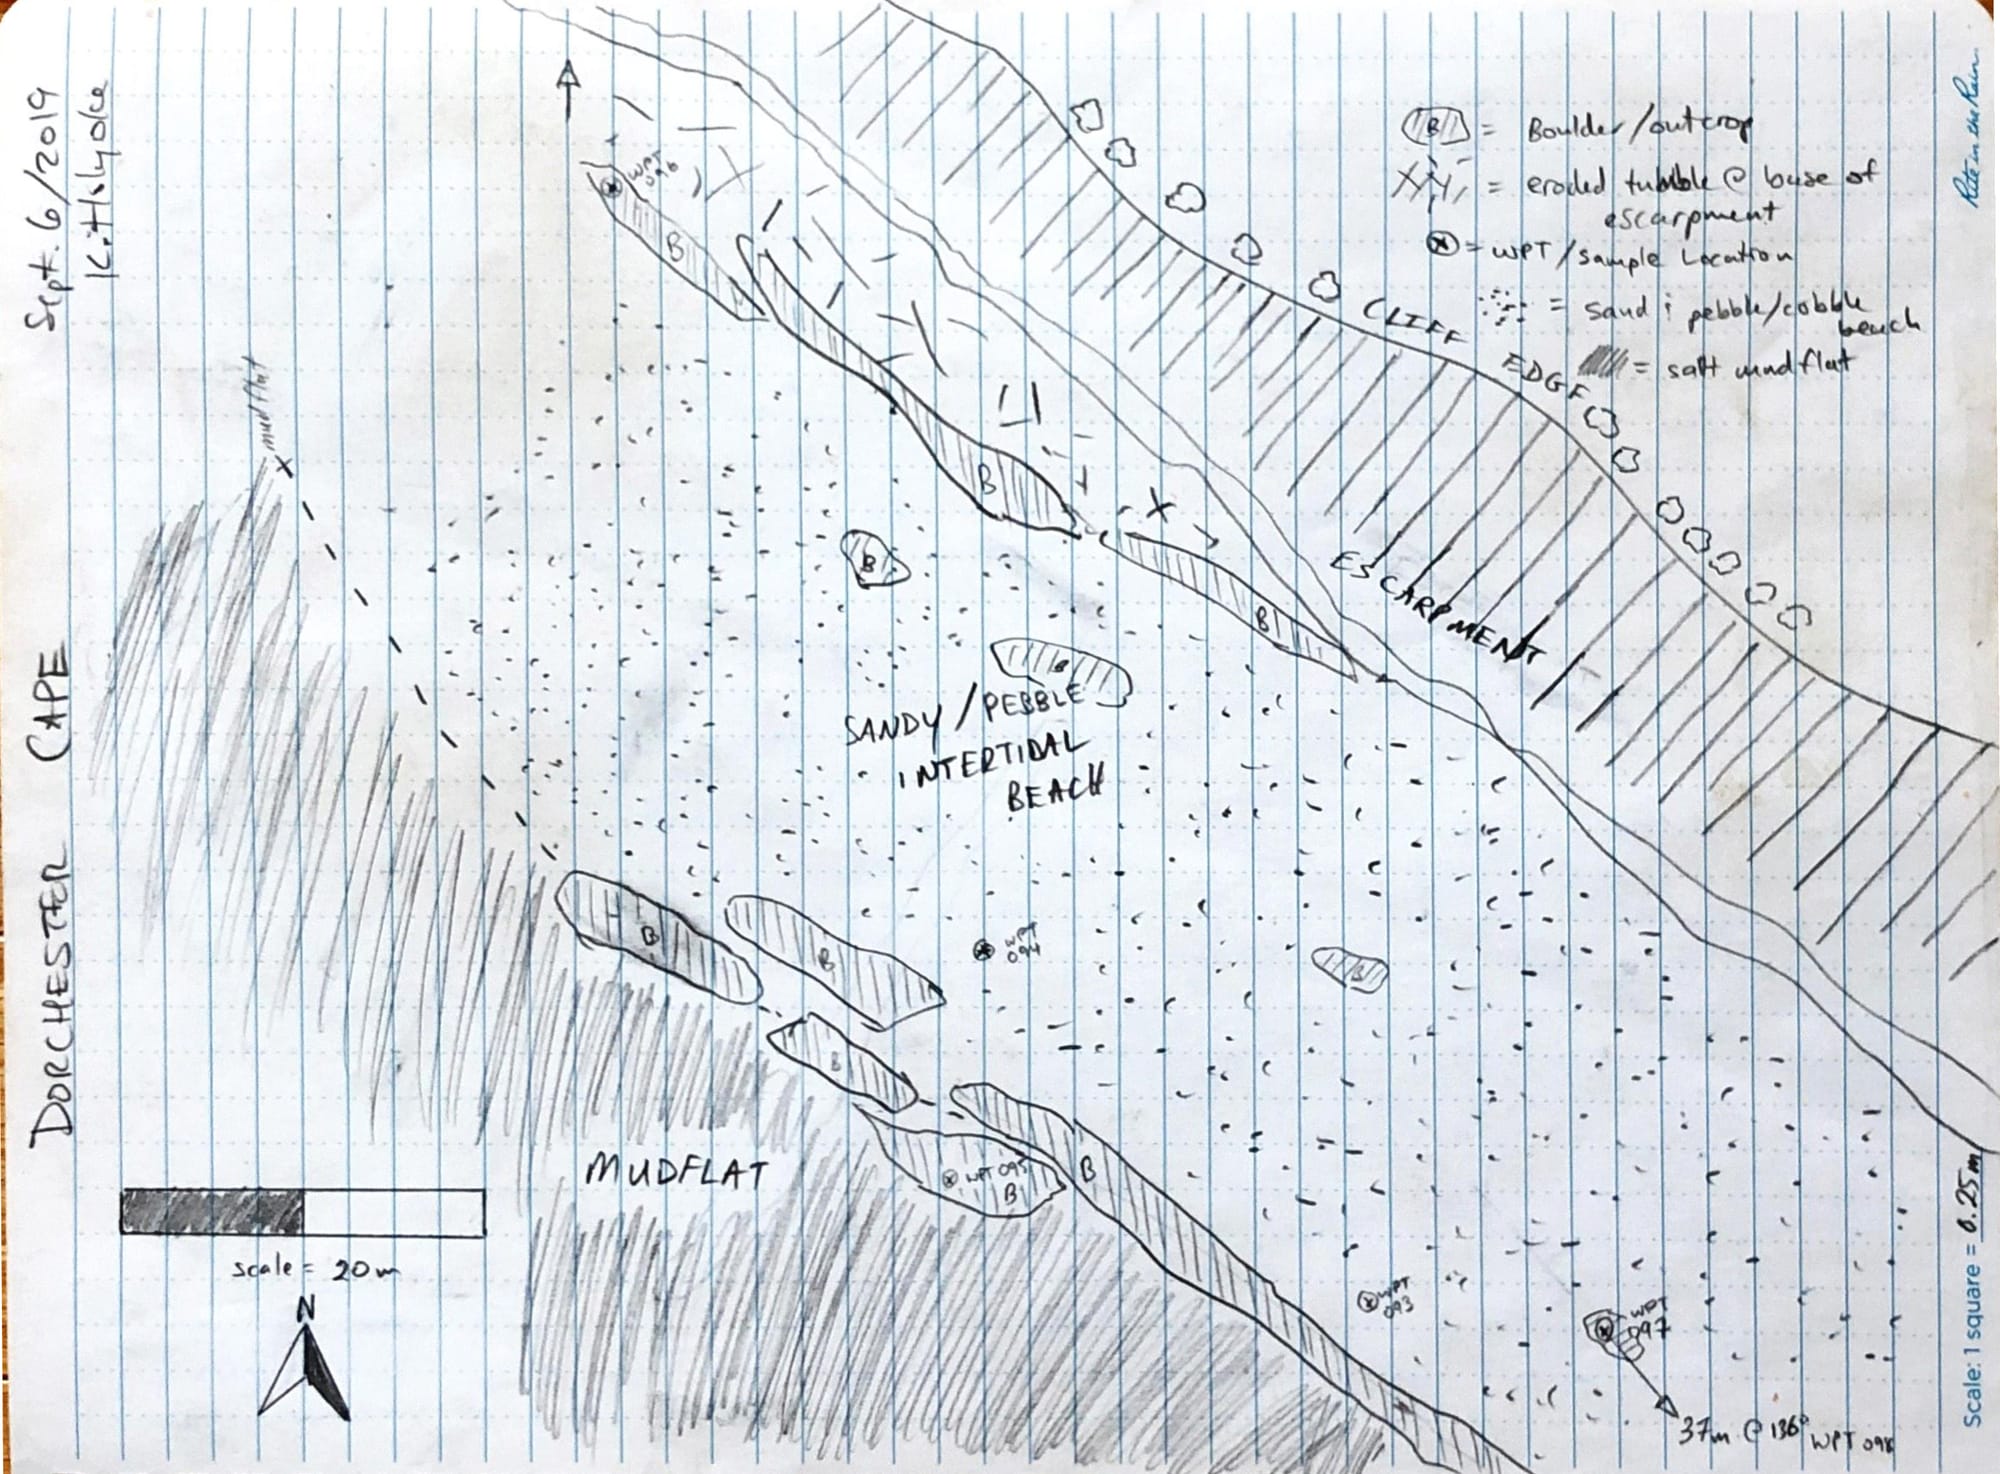 Sept. 6/2019
K. Holyoke
DORCHESTER CAPE
Rite in the Rain
B = Boulder/outcrop
= eroded tumble @ base of
escarpment
= WPT/sample Location
= sand & pebble/cobble
beach
= salt mudflat
WPT
096
B
CLIFF EDGE
mudflat
B
B
B
ESCARPMENT
B
SANDY/PEBBLE
INTERTIDAL
BEACH
B
B
WPT
094
B
B
MUDFLAT
WPT 095
B
B
scale = 20m
N
WPT
093
WPT
097
37m @ 136°
WPT 098
Scale: 1 square = 0.25m